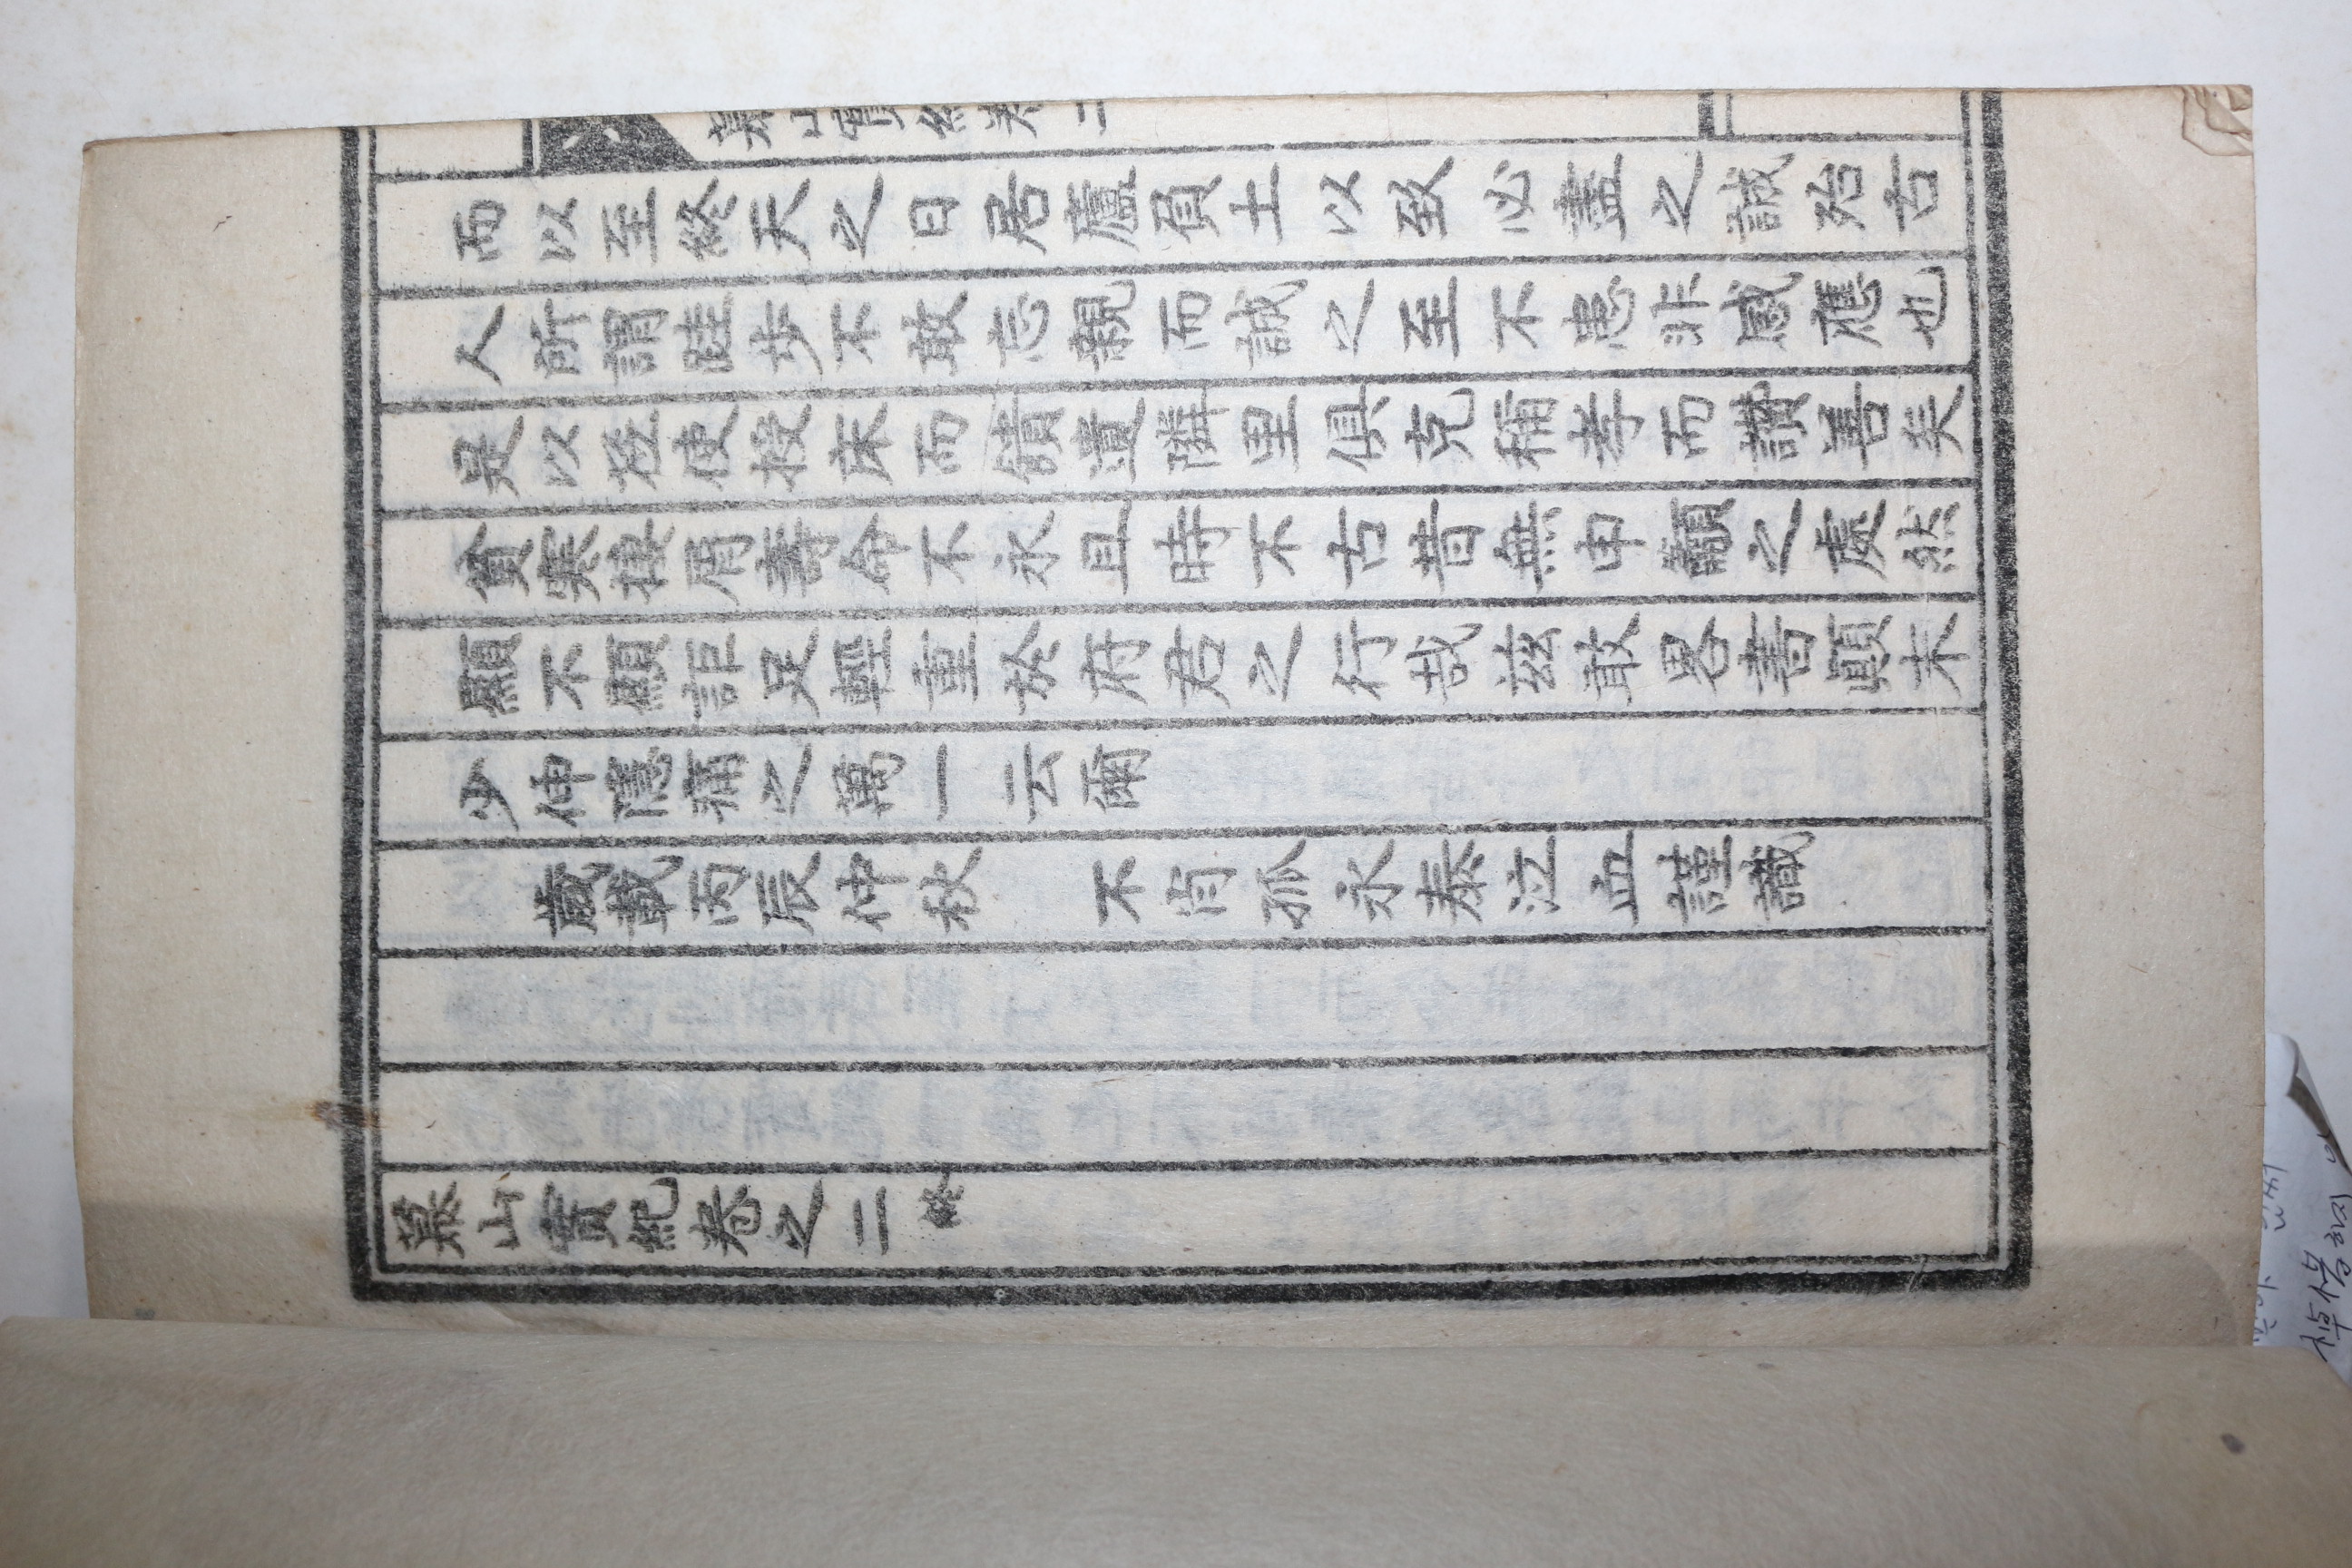 慕山實紀卷二
而以至終天之日居廬負土以致必盡之誠殆古
人所謂跬步不敢忘親而誠之至不患非感應也
是以在使授床而饋遺隣里俱克稱孝而讚善矣
貧寒棲屑壽命不永且時不古昔無申籲之處然
顯不顯詎足輕重於府君之行哉玆敢畧書顚末
少伸隱痛之萬一云爾
歲載丙辰仲秋　不肖孤永泰泣血謹識
慕山實紀卷之二 終